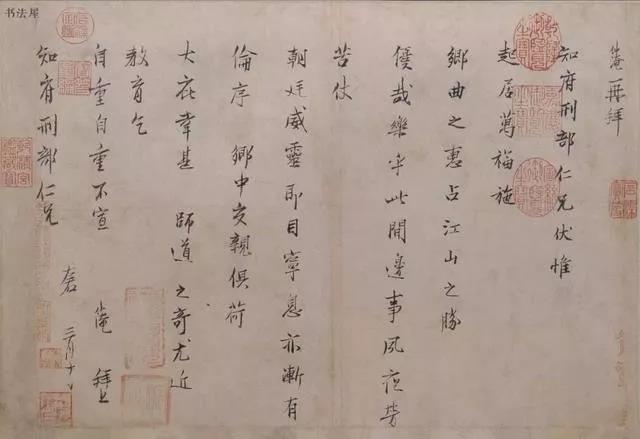 书法屋
淹再拜
知府刑部仁兄伏惟
起居萬福施
鄉曲之惠占江山之勝
優哉樂乎此間邊事夙夜勞
苦仗
朝廷威靈即目寧息亦漸有
倫序 鄉中交親俱荷
大庇幸甚 師道之奇尤近
教育乞
自重自重不宣 淹 拜上
知府刑部仁兄
三月十日